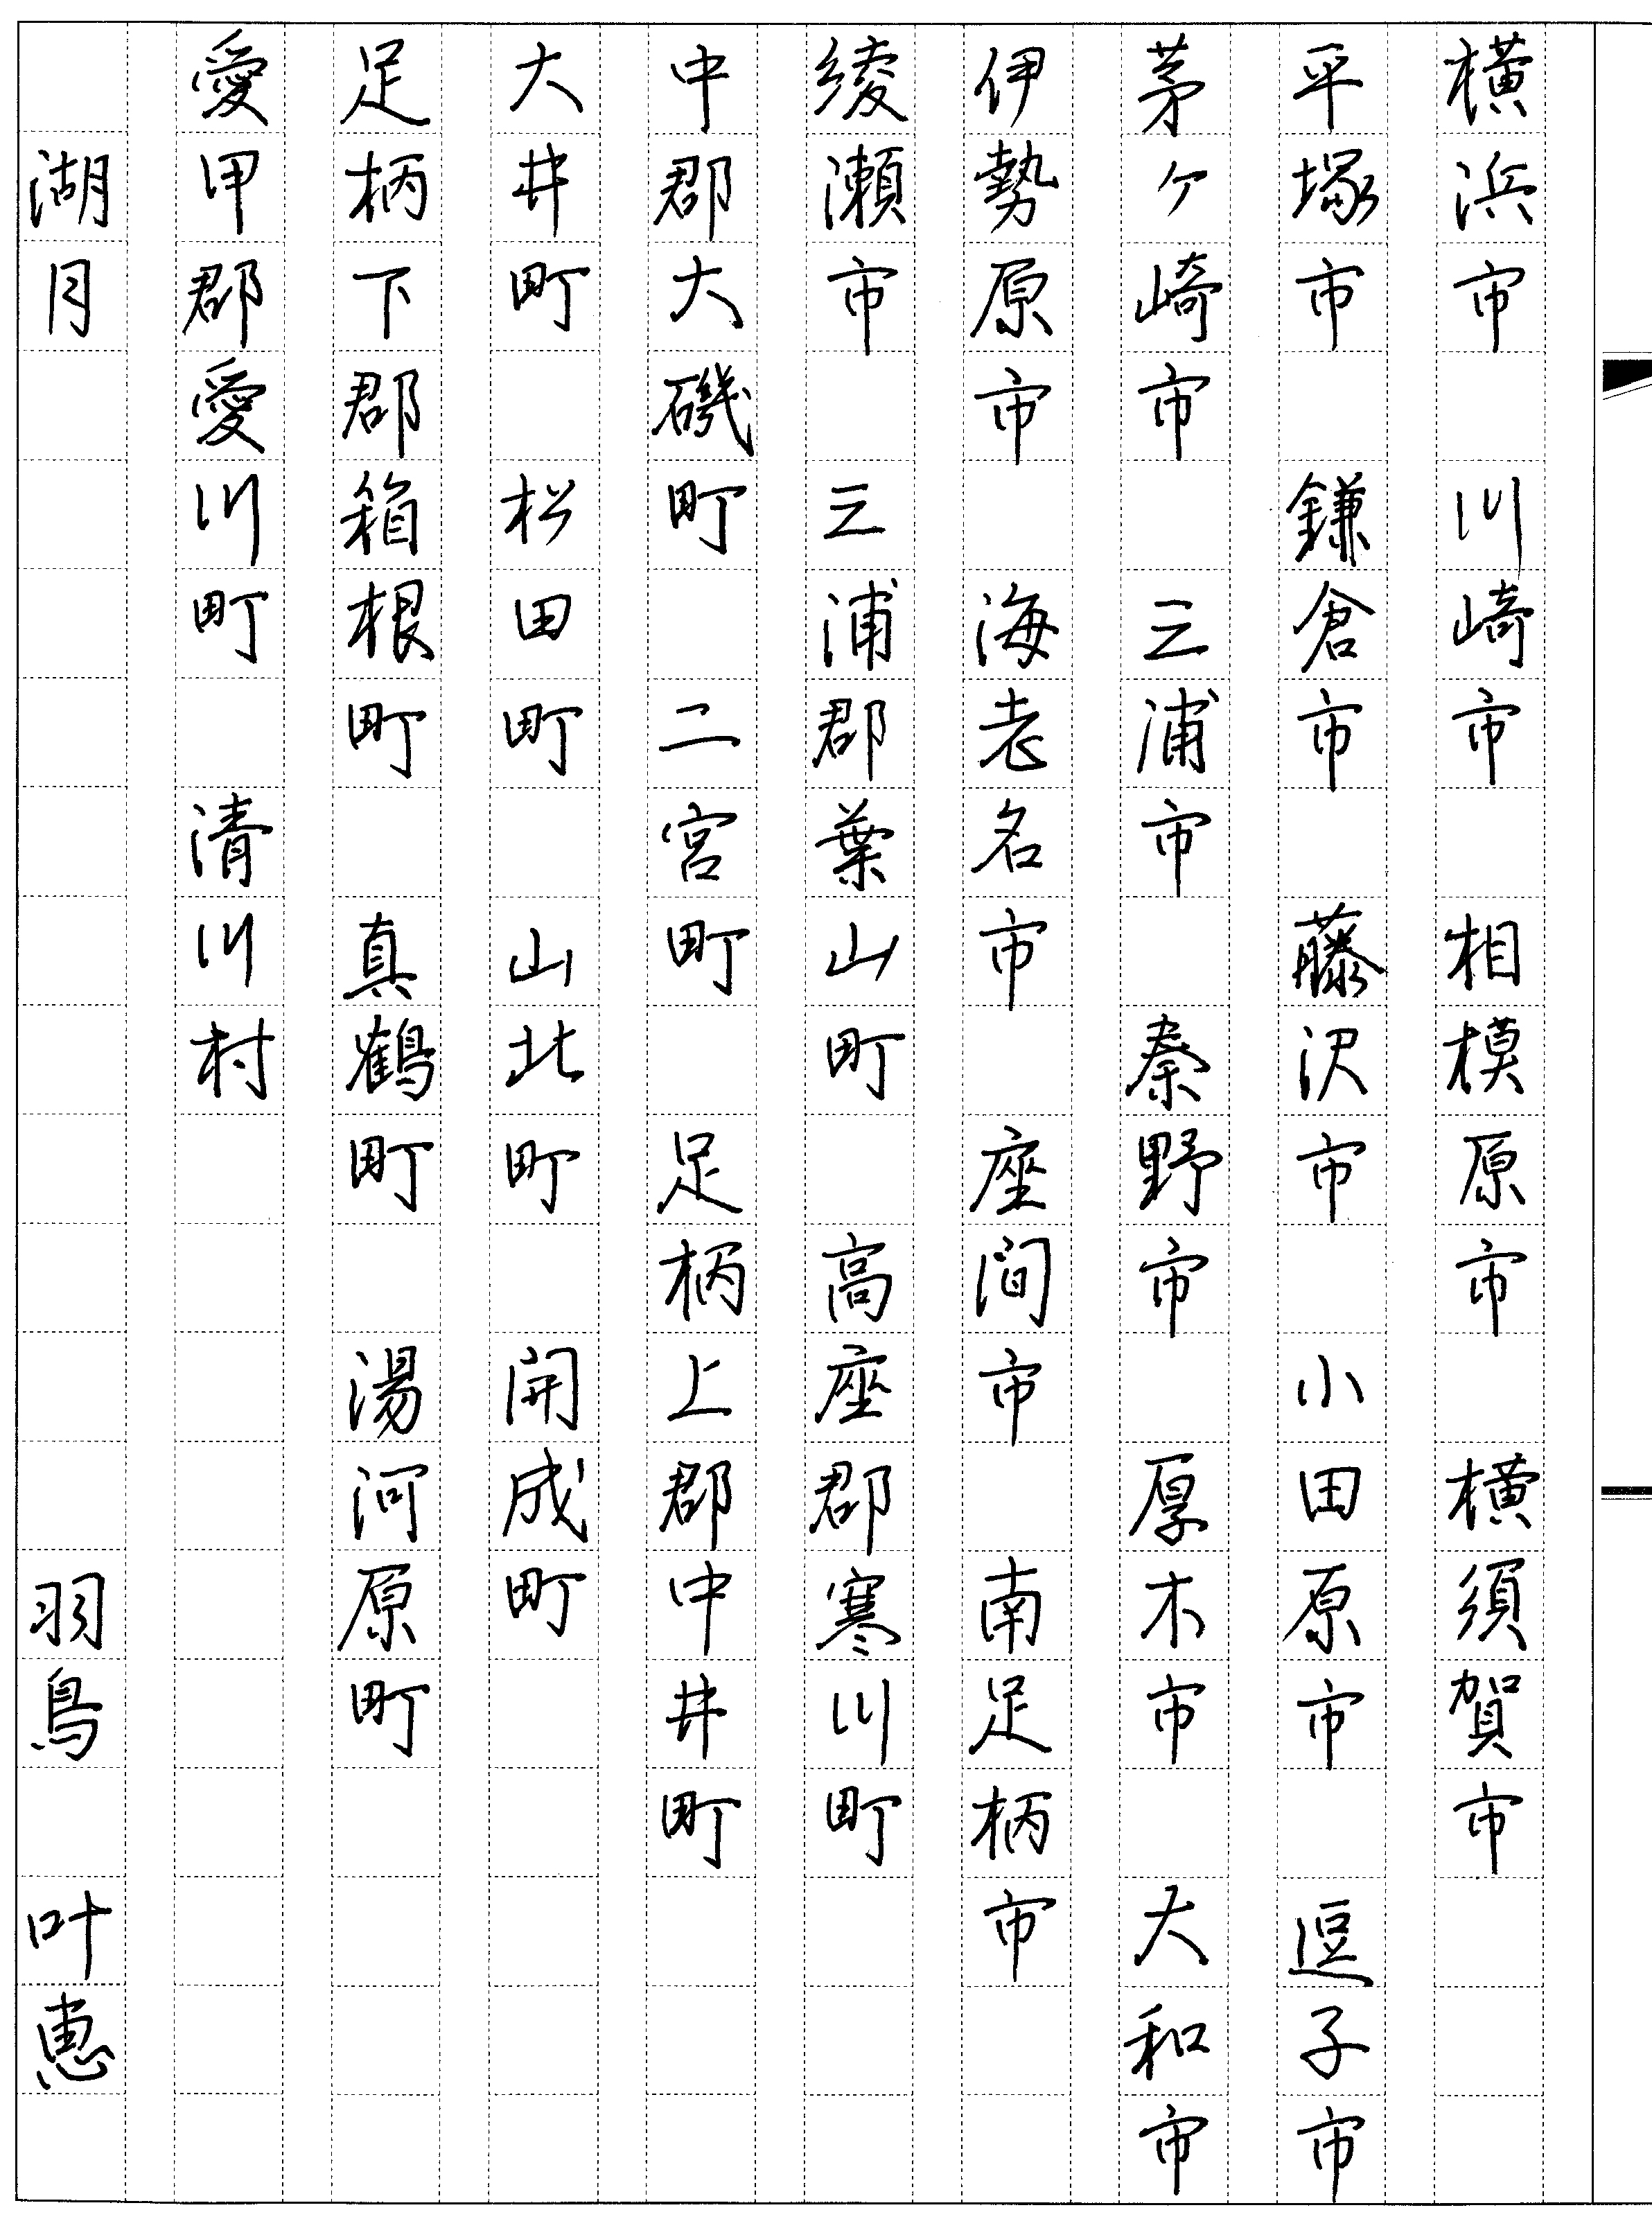 横浜市　川崎市　相模原市　横須賀市
平塚市　鎌倉市　藤沢市　小田原市　逗子市
茅ヶ崎市　三浦市　秦野市　厚木市　大和市
伊勢原市　海老名市　座間市　南足柄市
綾瀬市　三浦郡葉山町　高座郡寒川町
中郡大磯町　二宮町　足柄上郡中井町
大井町　松田町　山北町　開成町
足柄下郡箱根町　真鶴町　湯河原町
愛甲郡愛川町　清川村
湖月　羽鳥　叶恵